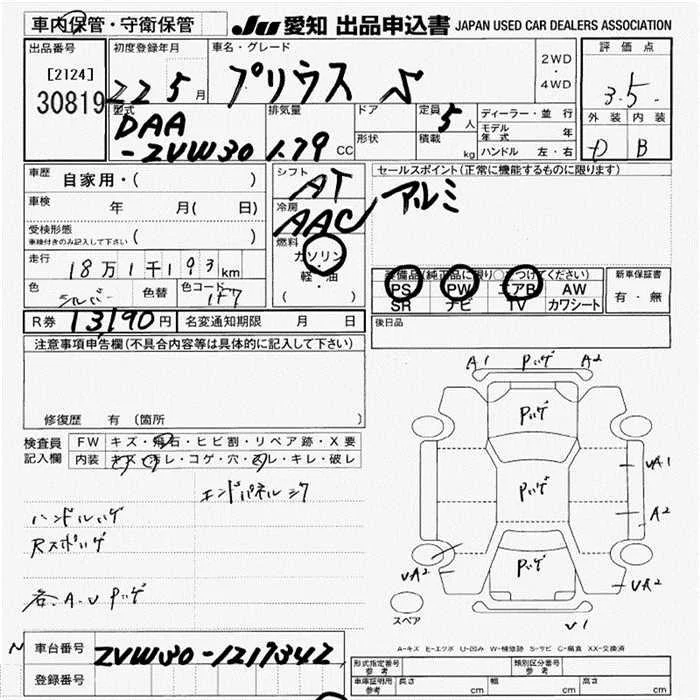 車内保管・守衛保管
JU 愛知 出品申込書 JAPAN USED CAR DEALERS ASSOCIATION
出品番号
[2124]
30819
初度登録年月
22 5月
車名・グレード
プリウス S
2WD
・
4WD
評価点
3.5
外装 内装
D B
型式
DAA
-ZVW30
排気量
1.79 CC
ドア
形状
定員 5人
積載 kg
ディーラー・並行
モデル年式 年
ハンドル 左・右
車歴
自家用・( )
車検 年 月( 日)
受検形態
車検付きのみ記入して下さい ( )
走行
18万1千193km
色 シルバー 色替 色コード 1F7
シフト
AT
冷房
AAC
燃料
ガソリン
・
( 軽・油 )
セールスポイント(正常に機能するものに限ります)
アルミ
装備品(純正品に限り○をつけてください)
PS PW エアB AW
SR ナビ TV カワシート
新車保証書
有・無
R券 13,190円 名変通知期限 月 日
後日品
注意事項申告欄(不具合内容等は具体的に記入して下さい)
修復歴 有 (箇所 )
検査員
記入欄
FW キズ・飛石・ヒビ割・リペア跡・X要
内装 キズ・汚レ・コゲ・穴・スレ・キレ・破レ
エンドパネルシワ
ハンドルハゲ
Rスポハゲ
各A.U Pハゲ
A1 Pハゲ A2
Pハゲ
Pハゲ
Pハゲ
UA1
A2
UA2
UA2
U1
スペア
A-キズ E-エクボ U-凹み W-補修跡 S-サビ C-腐食 XX-交換済
車台番号 ZVW30-1217342
登録番号
形式指定番号 参考
類別区分番号 参考
車庫証明用 参考 長さ cm 幅 cm 高さ cm